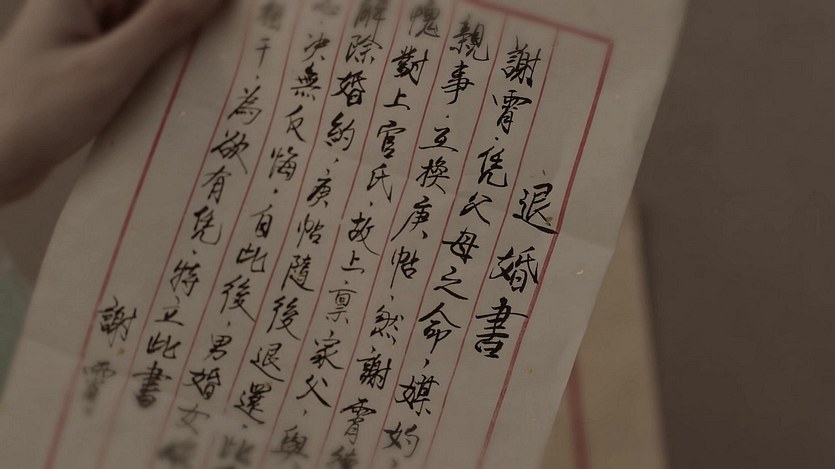 退婚書
謝霄，凭父母之命，媒妁
親事，互換庚帖，然謝霄
愧對上官氏，故上禀家父，與
解除婚約，庚帖隨後退還，此
決無反悔，自此後，男婚女
干，為欲有凭，特立此書
謝霄